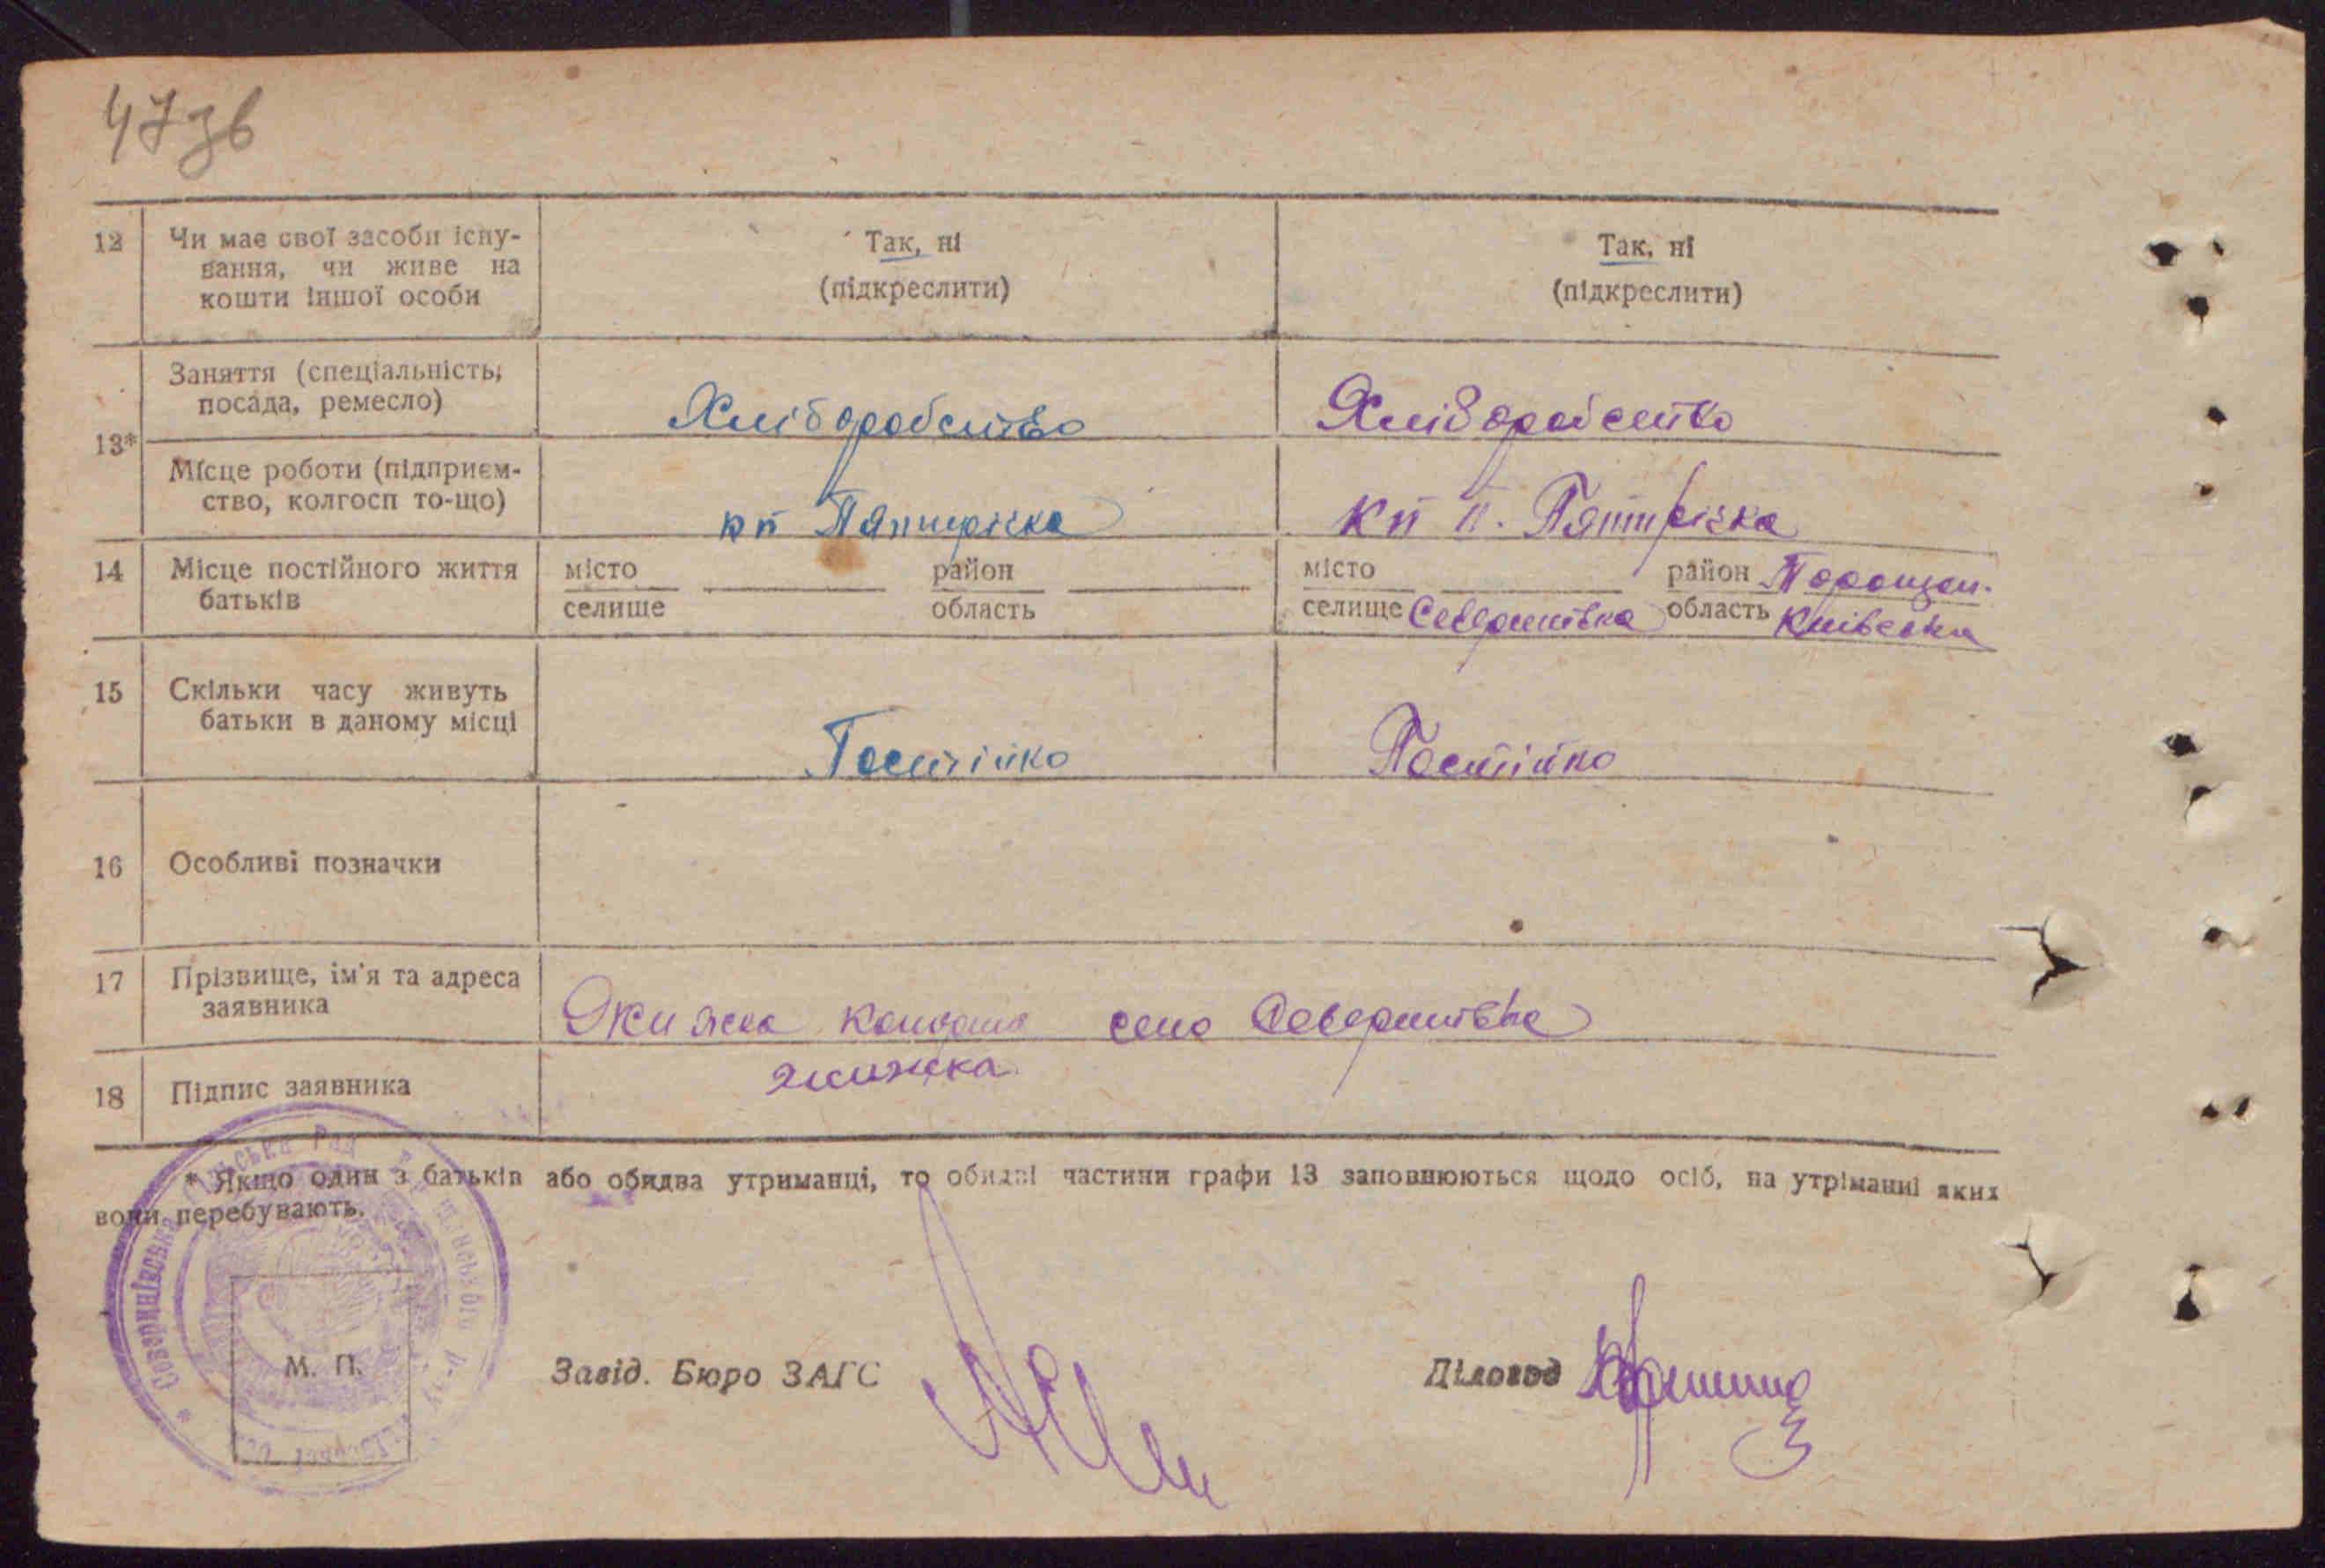 47зв
12 Чи має свої засоби існу- Так, ні Так, ні
вання, чи живе на (підкреслити) (підкреслити)
кошти іншої особи
Заняття (спеціальність, Хліборобство Хліборобство
посада, ремесло)
13*
Місце роботи (підприєм- кп Пятирічка кп п. Пятирічка
ство, колгосп то-що)
14 Місце постійного життя місто район місто район Таращан.
батьків селище область селище Северинівка область Київська
15 Скільки часу живуть Постійно Постійно
батьки в даному місці
16 Особливі позначки
17 Прізвище, ім'я та адреса село Северинівка
заявника
18 Підпис заявника
* Якщо один з батьків або обидва утриманці, то обидві частини графи 13 заповнюються щодо осіб, на утріманні яких
вони перебувають.
Северинівська сільська Рад
М. П. Завід. Бюро ЗАГС Діловод